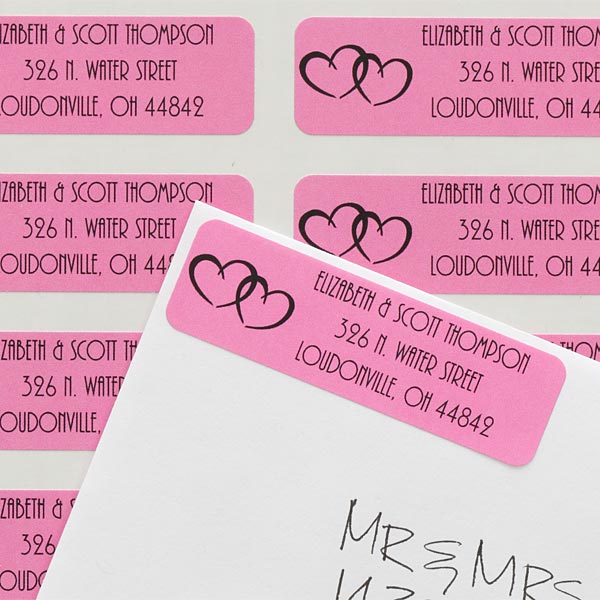 ELIZABETH & SCOTT THOMPSON
326 N. WATER STREET
LOUDONVILLE, OH 44842
ELIZABETH & SCOTT
326 N. WATER
LOUDONVILLE, OH
ELIZABETH & SCOTT THOMPSON
326 N. WATER STREET
LOUDONVILLE, OH
ELIZABETH & SCOTT
326 N. WATER
LOUDONVILLE, OH
ELIZABETH & SCOTT THOMPSON
326 N. WATER STREET
LOUDONVILLE, OH 44842
& SCOTT
326 N.
LOUDONVILLE,
326
MR & MRS